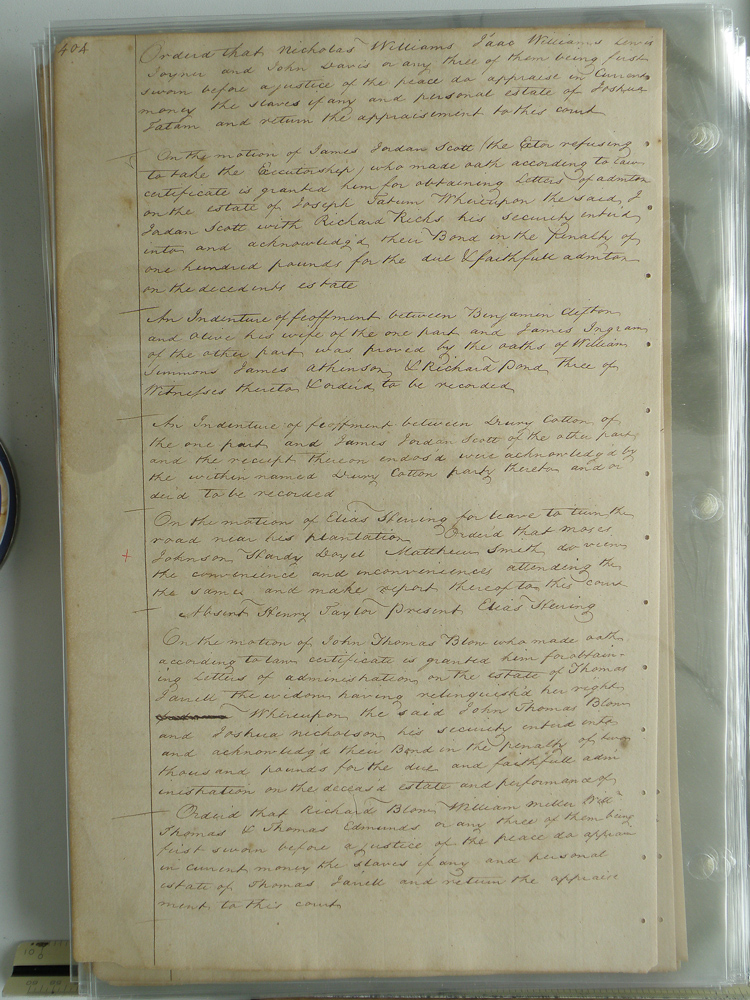 404
Orderd that Nicholas Williams Isaac Williams Lewis
Joyner and John Davis or any three of them being first
sworn before a justice of the peace do appraise in Current
money the slaves if any and personal estate of Joshua
Tatam and return the appraisement to this court
On the motion of James Jordan Scott (the Extor refusing
to take the Executorship) who made oath according to law
certificate is granted him for obtaining Letters of admton
on the estate of Joseph Tatum Whereupon the said J
Jordan Scott with Richard Ricks his security enterd
into and acknowledgd their Bond in the Penalty of
one hundred pounds for the due & faithfull admton
on the decedents estate
An Indenture of feoffment between Benjamin Clifton
and Olive his wife of the one part and James Ingram
of the other part was proved by the oaths of William
Simmons James Atkinson & Richard Pond three of
Witnesses thereto & orderd to be recorded
An Indenture of feoffment between Drury Cotton of
the one part and James Jordan Scott of the other part
and the receipt thereon endos'd were acknowledgd by
the within named Drury Cotton party thereto and or
derd to be recorded
On the motion of Elias Herring for leave to turn the
road near his plantation Orderd that Moses
Johnson Hardy Doyel Matthew Smith do view
the convenience and inconveniences attending the
the same and make report thereof to this court
Absent Henry Taylor Present Elias Herring
On the motion of John Thomas Blow who made oath
according to law certificate is granted him for obtain-
ing Letters of administration on the estate of Thomas
Jarrell the widow having relinquishd her right
Whereupon the said John Thomas Blow
and Joshua Nicholson his security enterd into
and acknowledgd their Bond in the penalty of two
thousand pounds for the due and faithfull adm
inistration on the deceasd estate and performance of
Orderd that Richard Blow William Miller Will^m
Thomas & Thomas Edmunds or any three of them being
first sworn before a justice of the peace do apprais
in current money the slaves if any and personal
estate of Thomas Jarrell and return the appraise
ment to this court